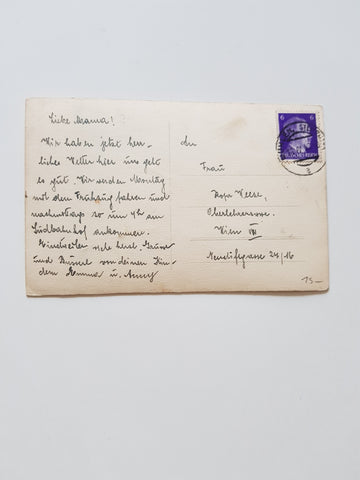 Liebe Mama!
Wir haben jetzt herr-
liches Wetter hier uns geht
es gut. Wir werden Montag
mit dem Frühzug fahren und
nachmittags so um Uhr am
Südbahnhof ankommen.
Einstweilen viele herzl. Grüsse
und Busserl von deinen Kin-
dern Emma u. Anny
An
Frau
Rosa Weese,
Oberlehrerswwe.
Wien VII
Neustiftgasse 24/16
6 6
15-